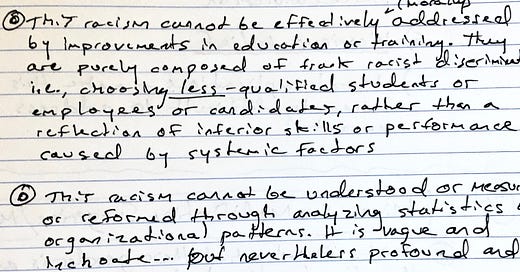 (more up
⑤ This racism cannot be effectively addressed
by improvements in education or training. They
are purely composed of frank racist discrimina
i.e., choosing less-qualified students or
employees or candidates, rather than a
reflection of inferior skills or performance
caused by systemic factors
⑥ This racism cannot be understood or measur
or reformed through analyzing statistics
organizational patterns. It is vague and
inchoate... but nevertheless profound and